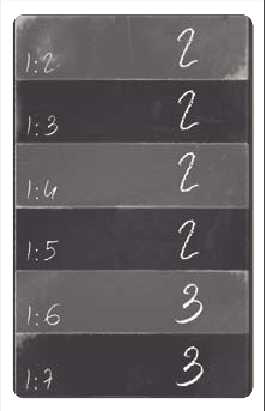 1:2 2
1:3 2
1:4 2
1:5 2
1:6 3
1:7 3